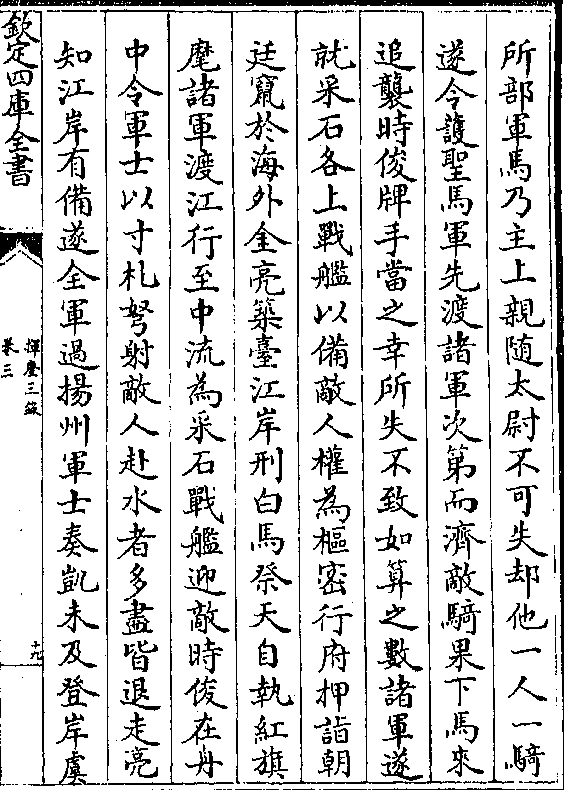 所部軍馬乃主上親随太尉不可失却他一人一騎
遂令護聖馬軍先渡諸軍次第而濟敵騎果下馬來
追襲時俊牌手當之幸所失不致如算之數諸軍遂
就采石各上戰艦以備敵人權為樞密行府押詣朝
廷竄於海外金亮築臺江岸刑白馬祭天自執紅旗
麾諸軍渡江行至中流為采石戰艦迎敵時俊在舟
中令軍士以寸札弩射敵人赴水者多盡皆退走亮
知江岸有備遂全軍過揚州軍士奏凱未及登岸虞
欽定四庫全書
揮麈三録
卷三
十九